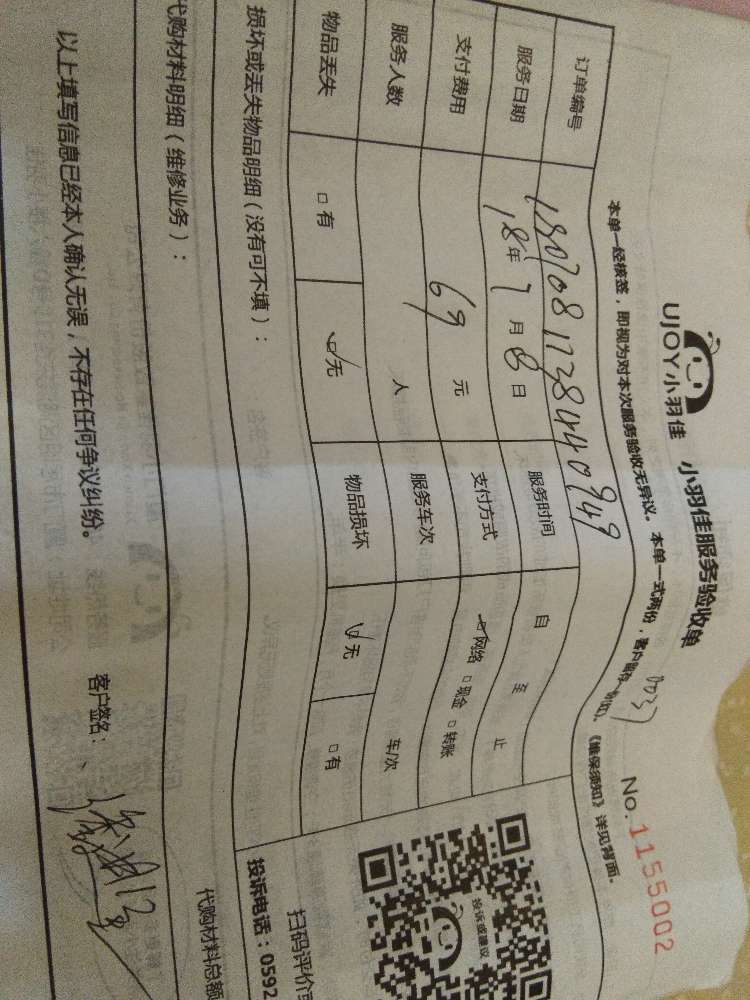 UJOY小羽佳 小羽佳服务验收单 No.1155002
本单一经核签，即视为对本次服务验收无异议。本单一式两份，客户留存 《维保须知》详见背面。
订单编号
服务日期 18年7月8日 服务时间 自 至 止
支付费用 69元 支付方式 网络 □现金 □转账
服务人数 人 服务车次 车/次
物品丢失 □有 □无 物品损坏 □无 □有
损坏或丢失物品明细（没有可不填）：
代购材料明细（维修业务）：
代购材料总额
以上填写信息已经本人确认无误，不存在任何争议纠纷。 客户签名：
投诉或建议
扫码评价
投诉电话：0592